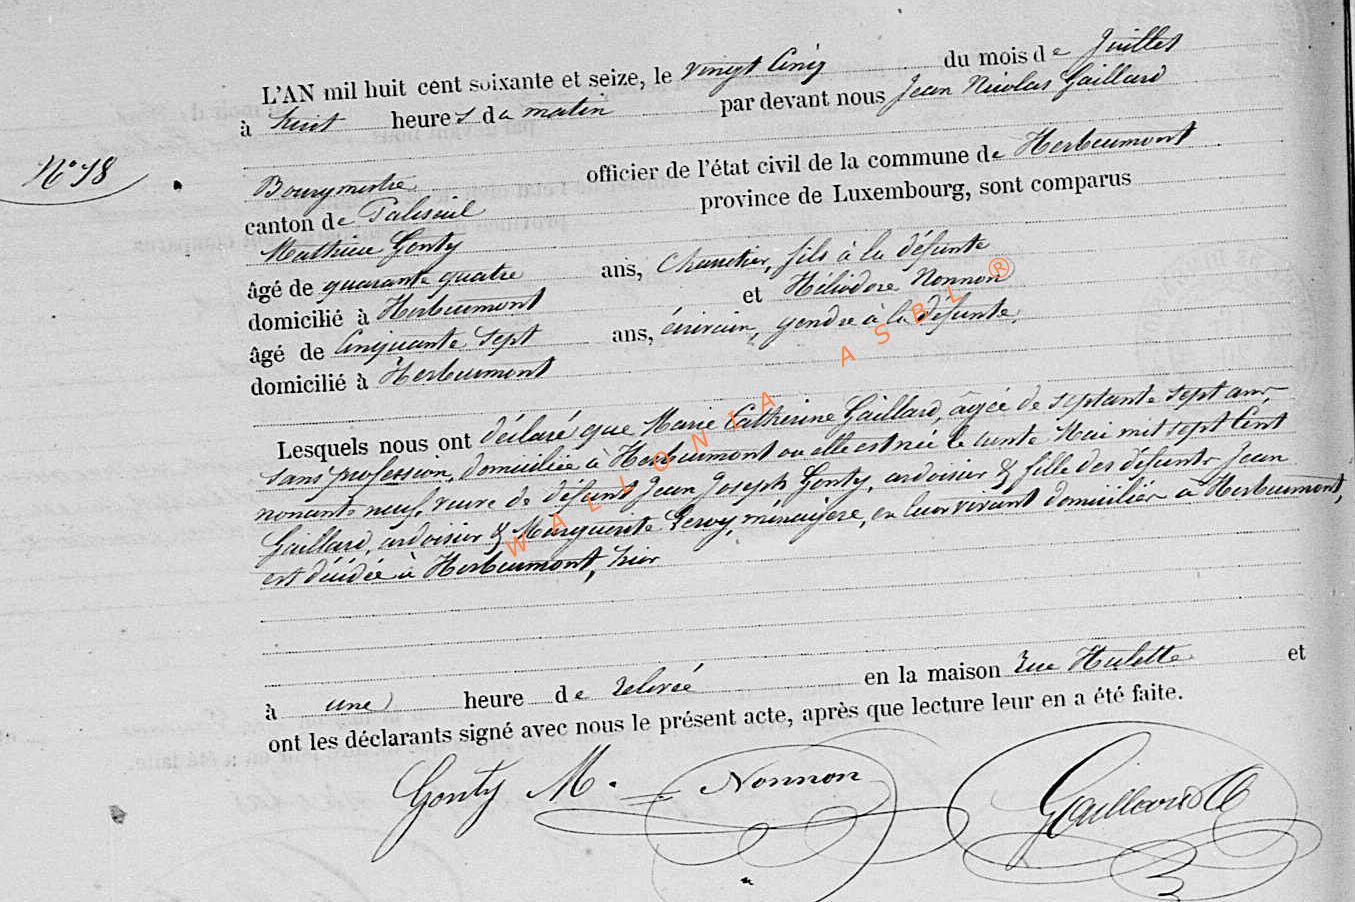 L'AN mil huit cent soixante et seize, le vingt Cinq du mois de Juillet
à huit heures du matin par devant nous Jean Nicolas Gaillard
N° 18
Bourgmestre officier de l'état civil de la commune de Herbeumont
canton de Paliseul province de Luxembourg, sont comparus
Mathieu Gonty
âgé de quarante quatre ans, Charretier, fils à la défunte
domicilié à Herbeumont et Héliodore Nonnon
âgé de Cinquante Sept ans, écrivain, gendre à la défunte,
domicilié à Herbeumont
Lesquels nous ont déclaré que Marie Catherine Gaillard, âgée de septante sept ans,
sans profession, domiciliée à Herbeumont ou elle est née le trente Mai mil sept Cent
nonante neuf, veuve de défunt Jean Joseph Gonty, ardoisier & fille des défunts Jean
Gaillard, ardoisier & Marguerite Leroy, ménagère, en leur vivant domiciliés à Herbeumont,
est décédée à Herbeumont, hier
à une heure de relevée en la maison rue Hulette et
ont les déclarants signé avec nous le présent acte, après que lecture leur en a été faite.
Gonty M. Nonnon Gaillard
WALLONIA ASBL ®